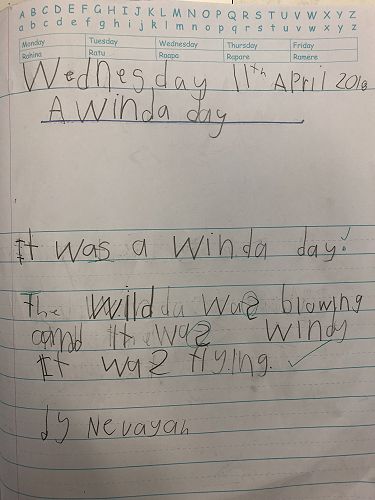 A B C D E F G H I J K L M N O P Q R S T U V W X Y Z
a b c d e f g h i j k l m n o p q r s t u v w x y z
Monday Tuesday Wednesday Thursday Friday
Rahina Ratu Raapa Rapare Ramere
Wednesday 11th April 2018
A winda day
It was a winda day.
The was blowing
and the was windy
It was flying.
by Nevayah